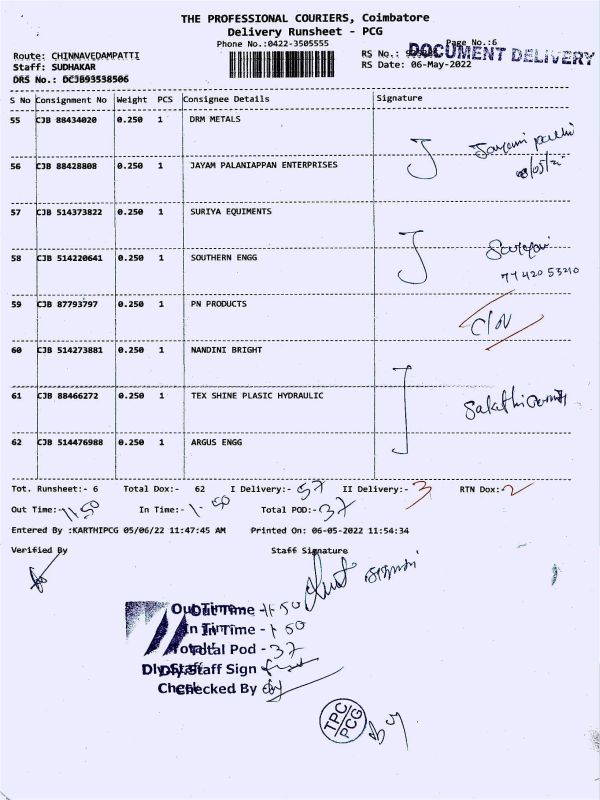 THE PROFESSIONAL COURIERS, Coimbatore
Delivery Runsheet - PCG
Phone No.:0422-3505555
Page No.:6
Route: CHINNAVEDAMPATTI
RS No.:
DOCUMENT DELIVERY
Staff: SUDHAKAR
RS Date: 06-May-2022
DRS No.: DCJB93538506
S No Consignment No Weight PCS Consignee Details Signature
55 CJB 88434020 0.250 1 DRM METALS
56 CJB 88428808 0.250 1 JAYAM PALANIAPPAN ENTERPRISES
57 CJB 514373822 0.250 1 SURIYA EQUIMENTS
58 CJB 514220641 0.250 1 SOUTHERN ENGG
77420 53210
59 CJB 87793797 0.250 1 PN PRODUCTS
C/N
60 CJB 514273881 0.250 1 NANDINI BRIGHT
61 CJB 88466272 0.250 1 TEX SHINE PLASIC HYDRAULIC
62 CJB 514476988 0.250 1 ARGUS ENGG
Tot. Runsheet:- 6 Total Dox:- 62 I Delivery:- 57 II Delivery:- 3 RTN Dox:- 2
Out Time:- 11.50 In Time:- 1.50 Total POD:- 37
Entered By :KARTHIPCG 05/06/22 11:47:45 AM Printed On: 06-05-2022 11:54:34
Verified By Staff Signature
Out Time - 11 50
In Time - 1 50
Total Pod - 37
Dly.Staff Sign
Checked By
TPC/PCG